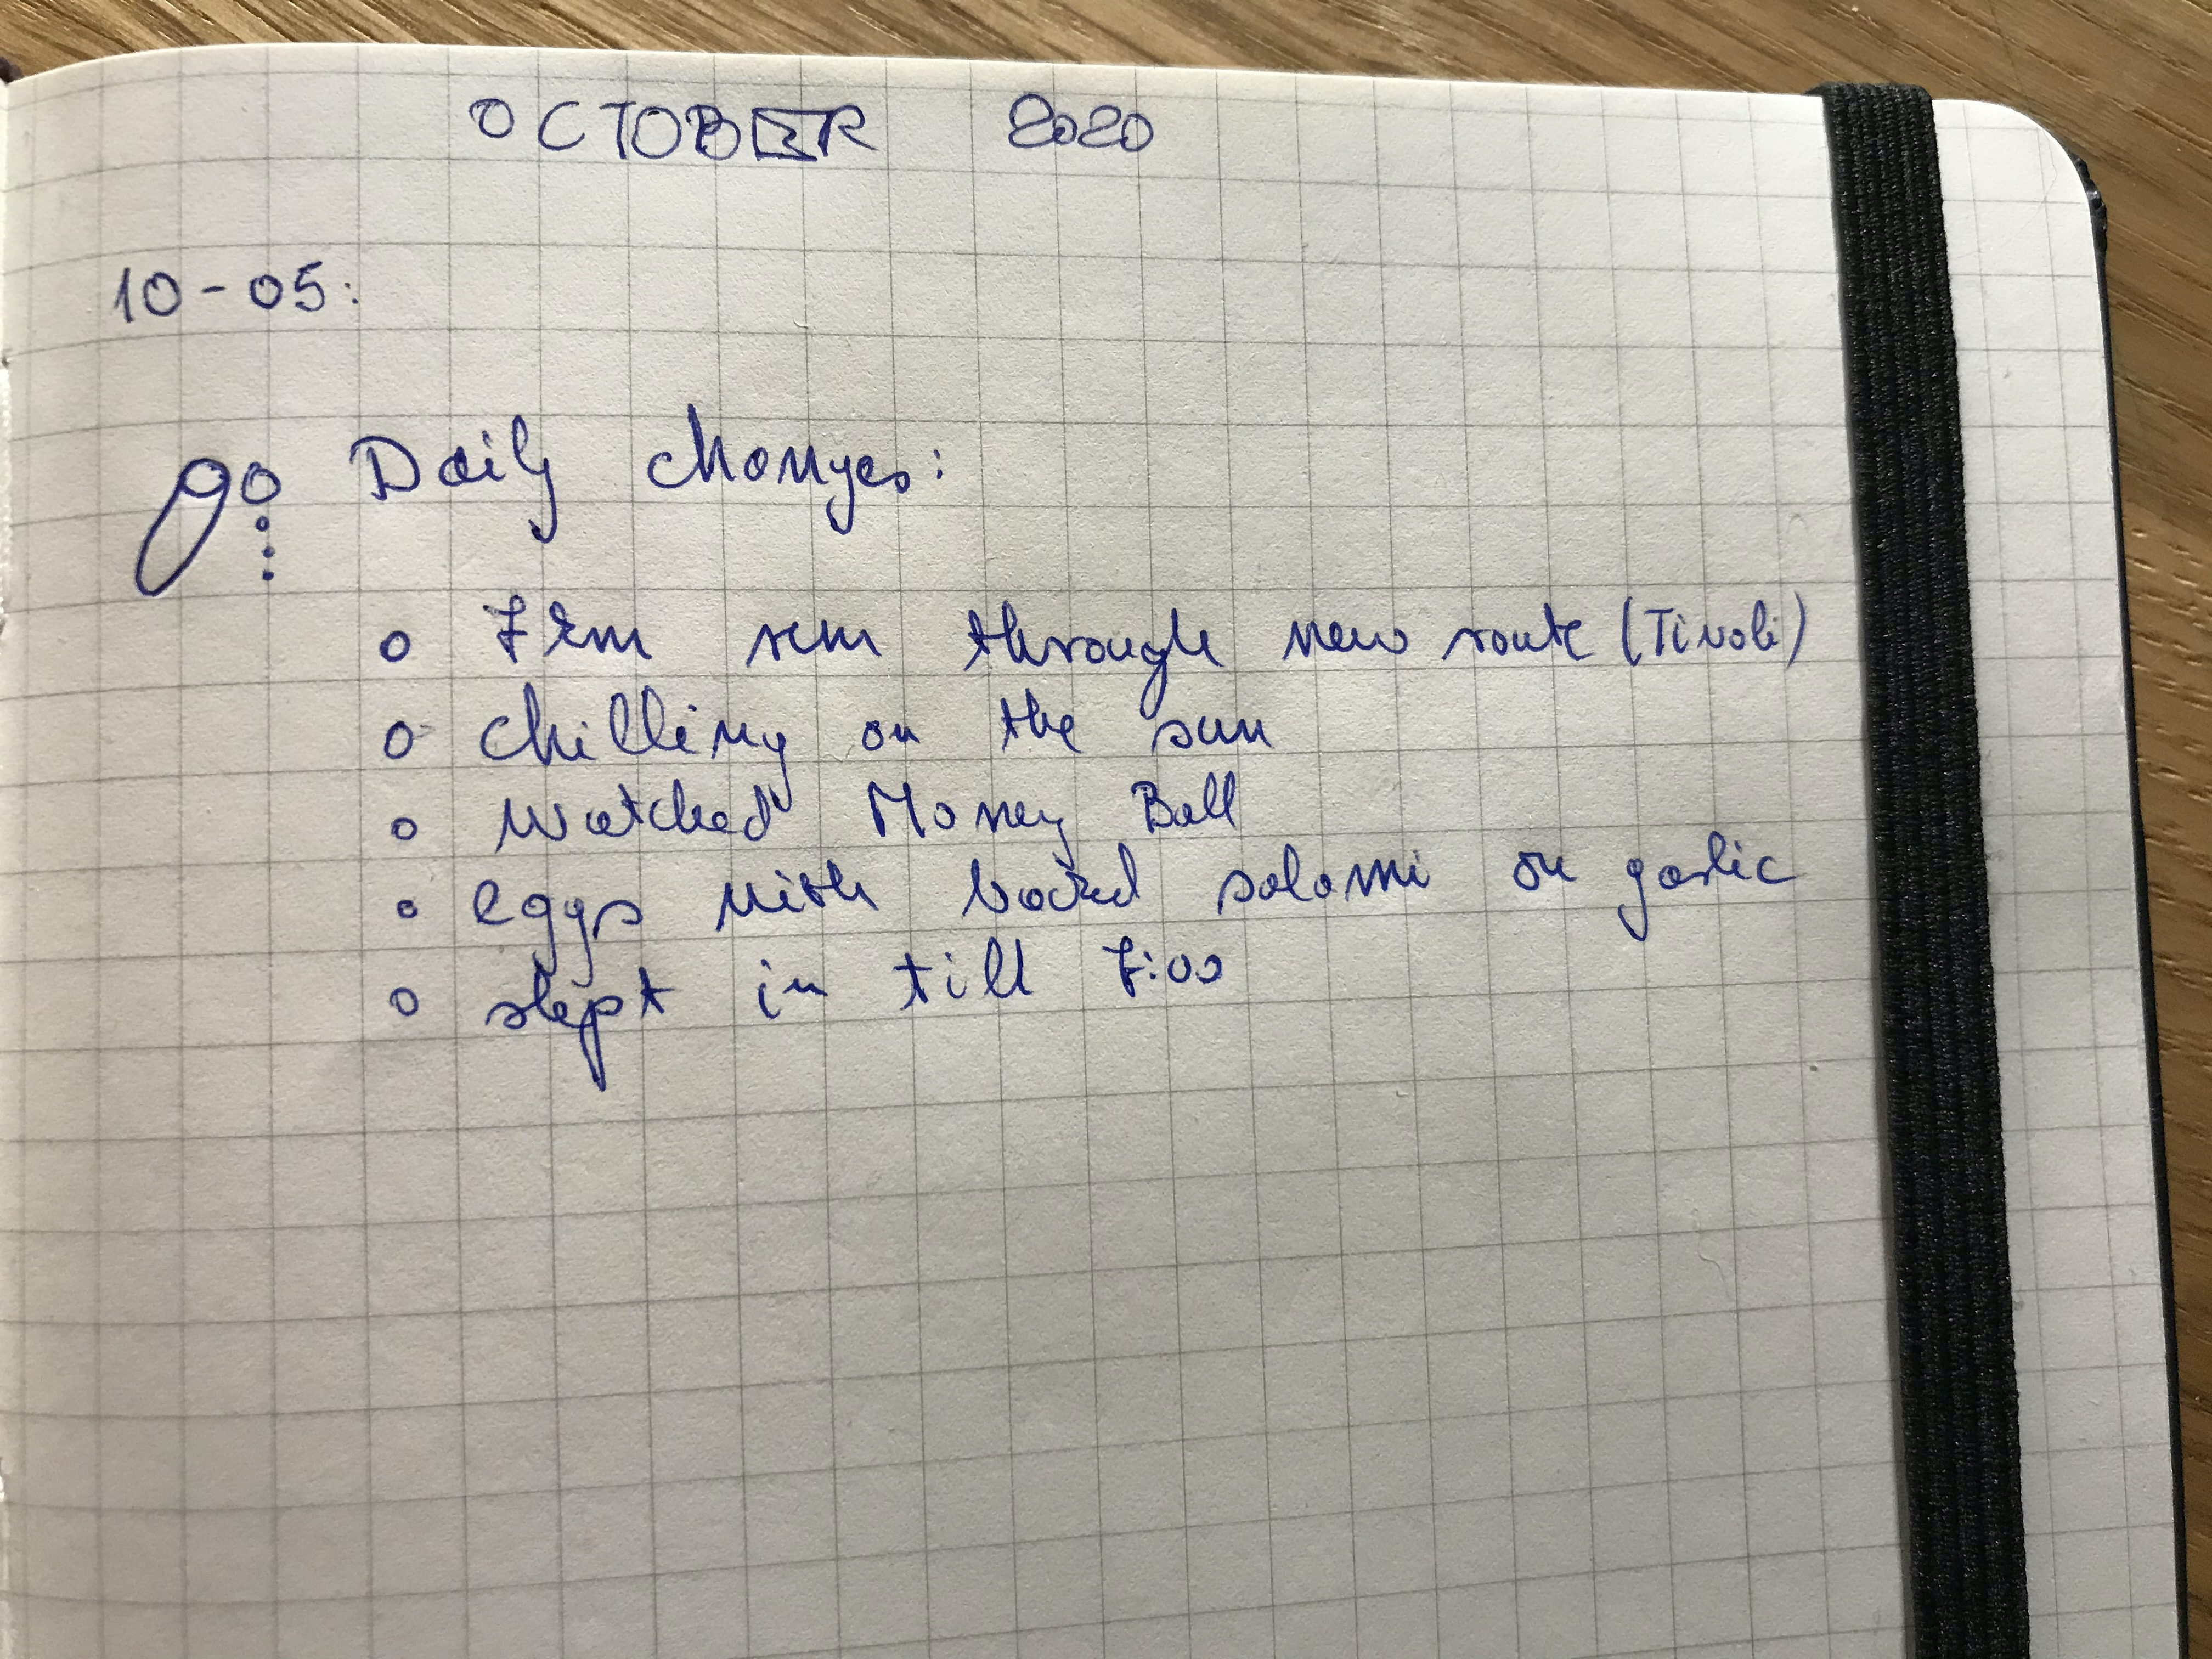 OCTOBER 2020
10-05:
Daily changes:
7km run through new route (Tivoli)
chilling on the sun
watched Money Ball
eggs with salami on garlic
slept in till 7:00